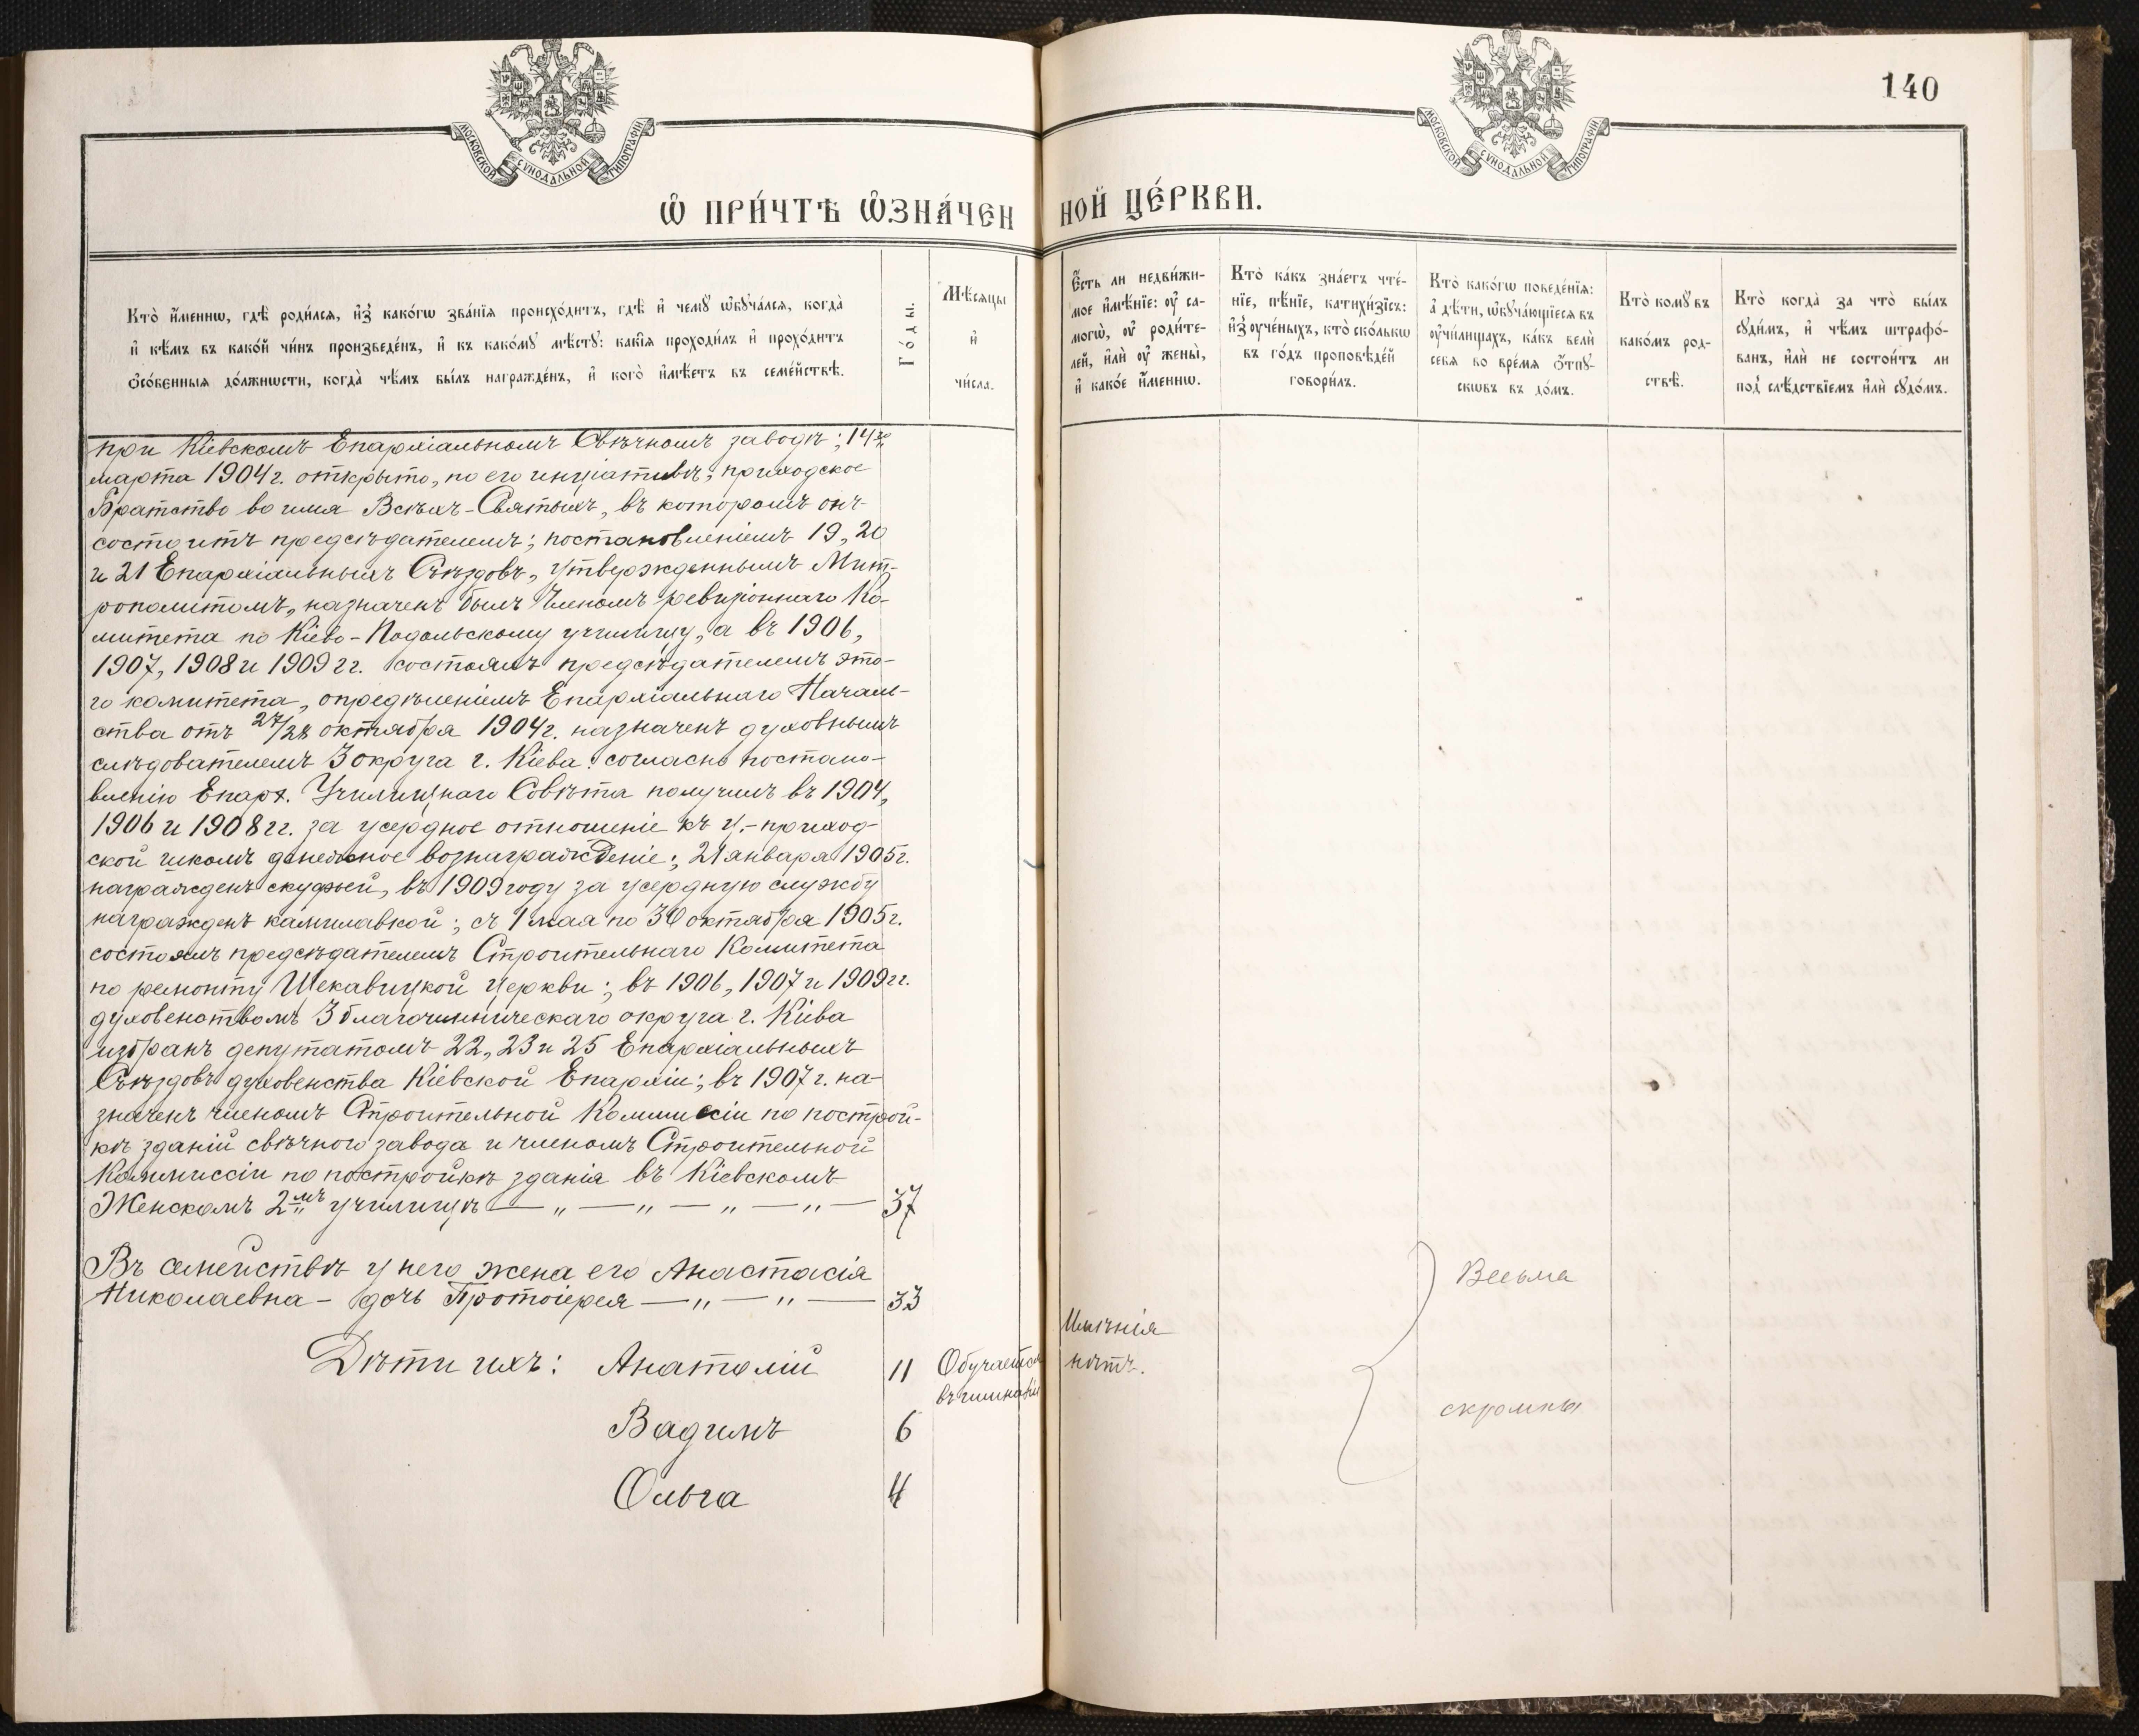 140
МОСКОВСКОЙ СУНОДАЛЬНОЙ ТИПОГРАФІИ
МОСКОВСКОЙ СУНОДАЛЬНОЙ ТИПОГРАФІИ
Ѽ ПРИ́ЧТѢ Ѽ҆ЗНА́ЧЕННОЙ ЦЕ́РКВИ.
Кто̀ и҆́меннѡ, гдѣ̀ роди́лсѧ, и҆з̾ како́гѡ зва́нїѧ происхо́дитъ, гдѣ̀ и҆ чемꙋ̀ ѡ҆бꙋча́лсѧ, когда̀
и҆ кѣ́мъ въ како́й чи́нъ произведе́нъ, и҆ къ како́мꙋ мѣ́стꙋ: какі̑ѧ проходи́лъ и҆ прохо́дитъ
ѻ҆со́бенныѧ до́лжнѡсти, когда̀ чѣ́мъ бы́лъ награжде́нъ, и҆ кого̀ и҆мѣ́етъ въ семе́йствѣ.
Го́ды.
Мѣ́сѧцы
и҆
чи́сла.
Е҆́сть ли недви́жи-
мое и҆мѣ́нїе: ᲂу҆ са-
могѡ̀, ᲂу҆ роди́те-
лей, и҆лѝ ᲂу҆ жены̀,
и҆ како́е и҆́меннѡ.
Кто̀ ка́къ зна́етъ чте́-
нїе, пѣ́нїе, катихи́зїсъ:
и҆з̾ ᲂу҆че́ныхъ, кто̀ ско́лькѡ
въ го́дъ проповѣ́дей
говори́лъ.
Кто̀ како́гѡ поведе́нїѧ:
а҆ дѣ́ти, ѡ҆бꙋча́ющїесѧ въ
ᲂу҆чи́лищахъ, ка́къ велѝ
себѧ̀ во вре́мѧ ѿпꙋ-
скѡвъ въ до́мъ.
Кто̀ комꙋ̀ въ
како́мъ род-
ствѣ̀.
Кто̀ когда̀ за что̀ бы́лъ
сꙋди́мъ, и҆ чѣ́мъ штрафо́-
ванъ, и҆лѝ не состои́тъ ли
под̾ слѣ́дствїемъ и҆лѝ сꙋдо́мъ.
при Кіевскомъ Епархіальномъ Свѣчномъ заводѣ; 14го
марта 1904 г. открыто, по его инціативѣ, приходское
Братство во имя Всѣхъ-Святыхъ, въ которомъ онъ
состоитъ предсѣдателемъ; постановленіемъ 19, 20
и 21 Епархіальныхъ Съѣздовъ, утвержденнымъ Мит-
рополитомъ, назначенъ былъ Членомъ ревизіоннаго Ко-
митета по Кіево-Подольскому училищу, а въ 1906,
1907, 1908 и 1909 гг. состоялъ предсѣдателемъ это-
го комитета, опредѣленіемъ Епархіальнаго Началь-
ства отъ 27/28 октября 1904 г. назначенъ духовнымъ
слѣдователемъ 3 округа г. Кіева. согласно постано-
вленію Епарх. Училищнаго Совѣта получилъ въ 1904,
1906 и 1908 гг. за усердное отношеніе къ ц.-приход-
ской школѣ денежное вознагражденіе; 21 января 1905 г.
награжденъ скуфьей, въ 1909 году за усердную службу
награжденъ камилавкой; съ 1 мая по 30 октября 1905 г.
состоялъ предсѣдателемъ Строительнаго Комитета
по ремонту Щекавицкой Церкви; въ 1906, 1907 и 1909 гг.
духовенствомъ 3 благочинническаго округа г. Кіева
избранъ депутатомъ 22, 23 и 25 Епархіальныхъ
Съѣздовъ духовенства Кіевской Епархіи; въ 1907 г. на-
значенъ членомъ Строительной Коммиссіи по построй-
кѣ зданій свѣчного завода и членомъ Строительной
Коммиссіи по постройкѣ зданія въ Кіевскомъ
Женскомъ 2мъ училищѣ — „ — „ — „ — „ — 37
Въ семействѣ у него жена его Анастасія
Николаевна – дочь Протоіерея — „ — „ — 33
Дѣти ихъ: Анатолій 11 Обучается
въ гимназіи
Вадимъ 6
Ольга 4
Имѣнія
нѣтъ.
Весьма
скромны